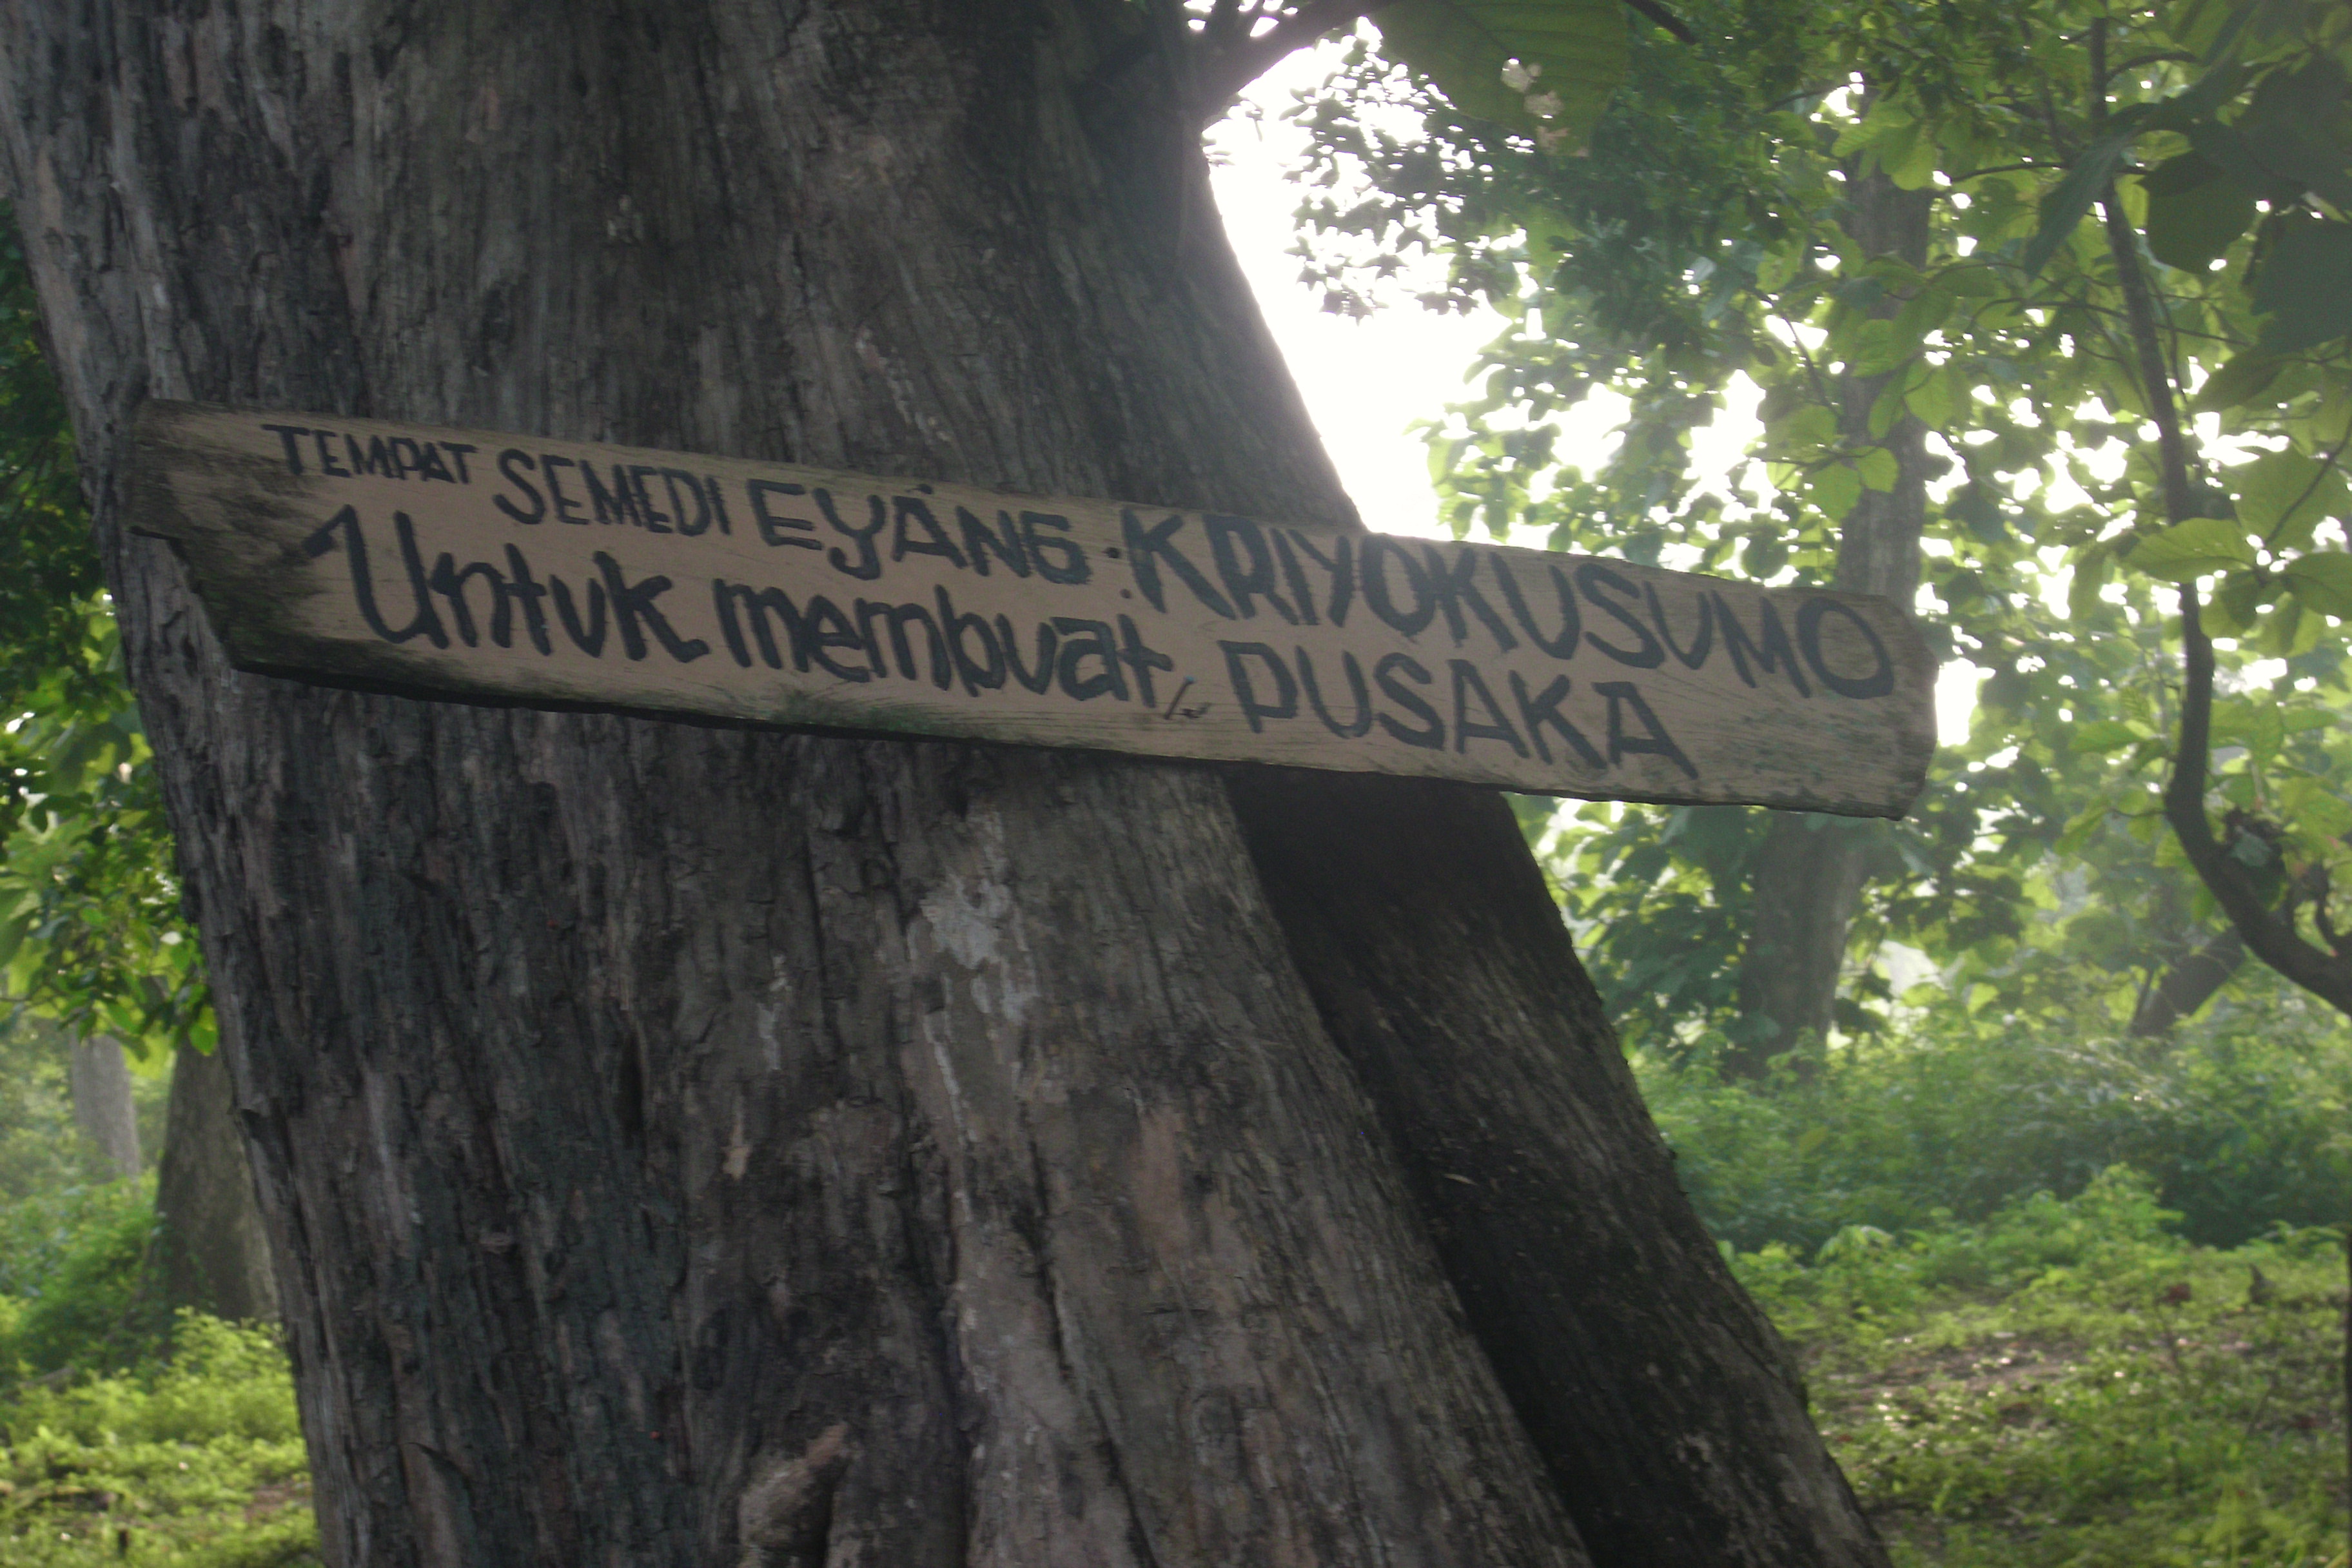 TEMPAT SEMEDI EYANG : KRIYOKUSUMO
Untuk membuat PUSAKA